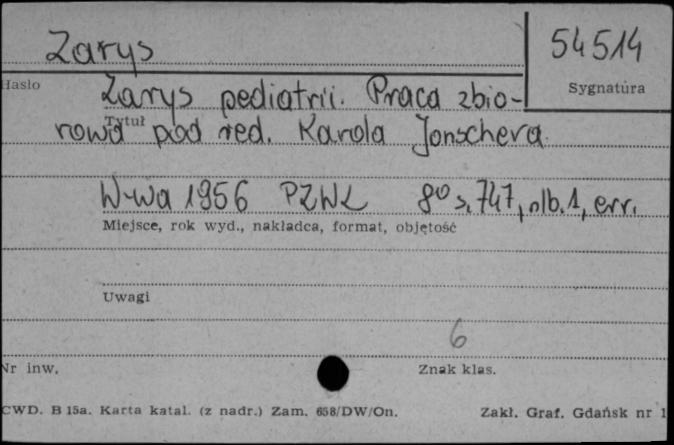 Zarys
54514
Hasło
Sygnatura
Zarys pediatrii. Praca zbio-
Tytuł
rowa pod red. Karola Jonschera.
W-wa 1956 PZWL 8° s. 747, nlb. 1, err.
Miejsce, rok wyd., nakładca, format, objętość
Uwagi
6
Nr inw.
Znak klas.
CWD. B 15a. Karta katal. (z nadr.) Zam. 658/DW/On.
Zakł. Graf. Gdańsk nr 1